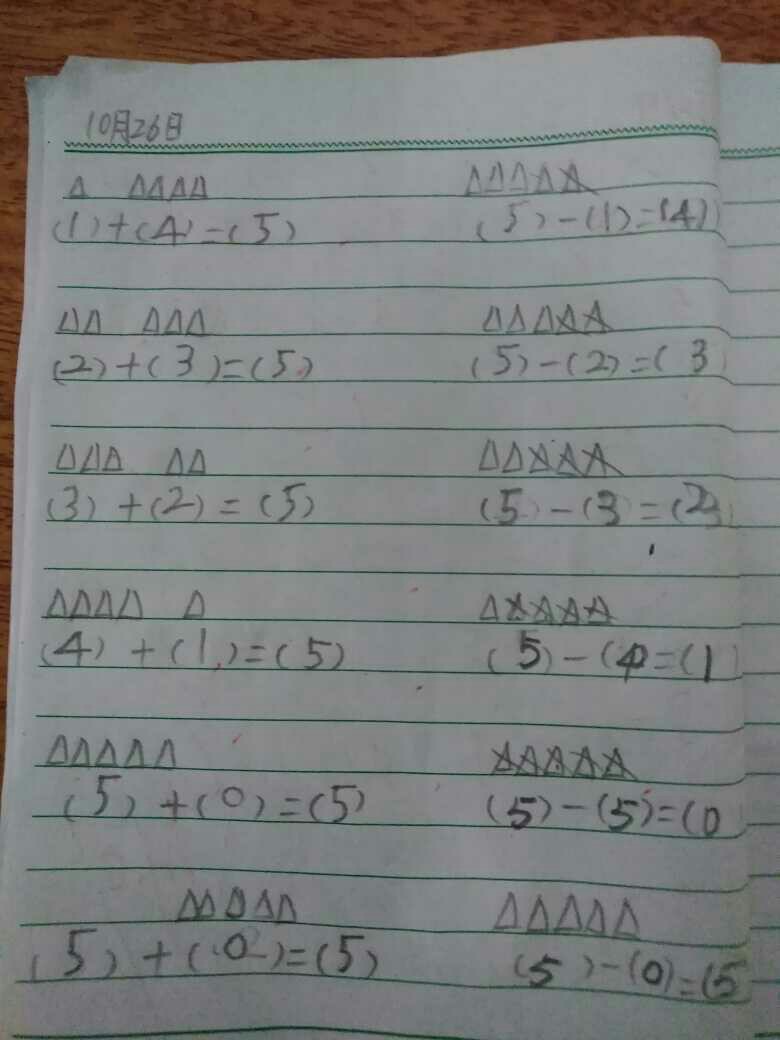 10月26日
△ △△△△ △△△△△
(1)+(4)=(5) (5)-(1)=(4)
△△ △△△ △△△△△
(2)+(3)=(5) (5)-(2)=(3
△△△ △△ △△△△△
(3)+(2)=(5) (5)-(3=(2)
△△△△ △ △△△△△
(4)+(1)=(5) (5)-(4)=(1
△△△△△ △△△△△
(5)+(0)=(5) (5)-(5)=(0
△△△△△ △△△△△
(5)+(0)=(5) (5)-(0)=(5